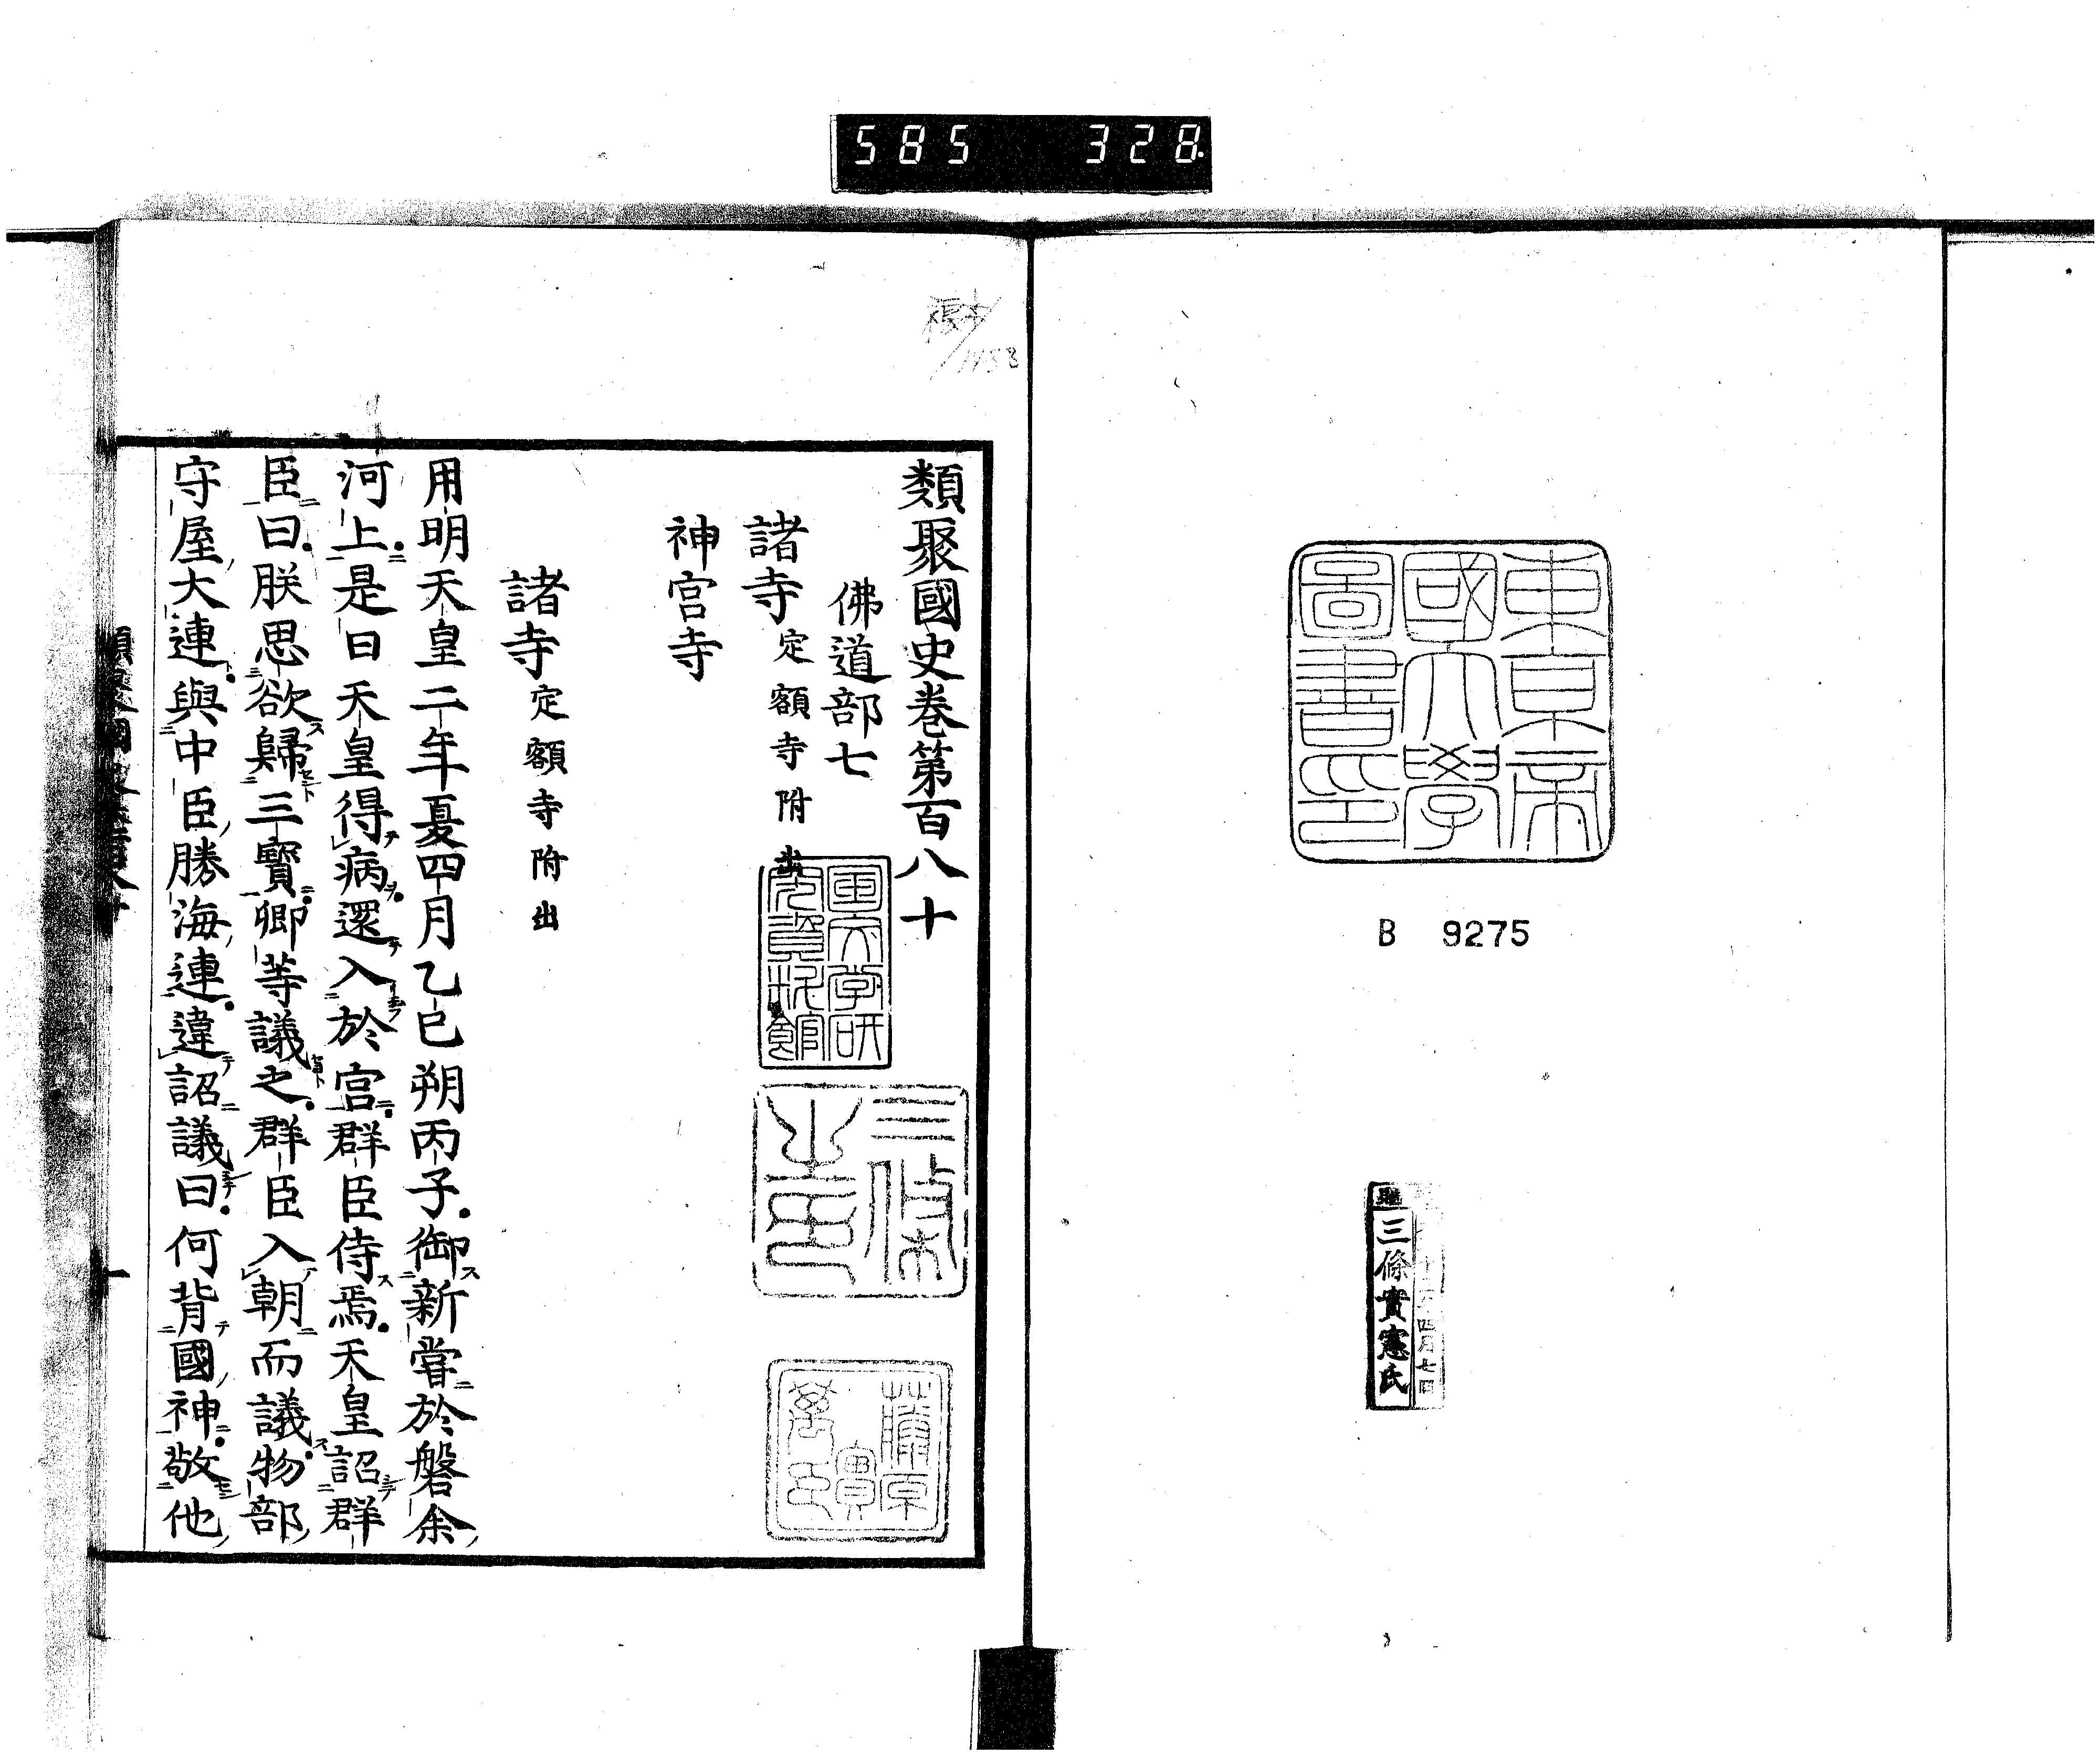 585 328
東京帝
國大學
圖書印
B 9275
三條實憲氏
四月七日
類聚國史卷第百八十
佛道部七
諸寺 定額寺附出
神宮寺
諸寺 定額寺附出
用明天皇二年夏四月乙巳朔丙子御新嘗於磐余
河上是日天皇得病還入於宮群臣侍焉天皇詔群
臣曰朕思欲歸三寶卿等議之群臣入朝而議物部
守屋大連與中臣勝海連違詔議曰何背國神敬他